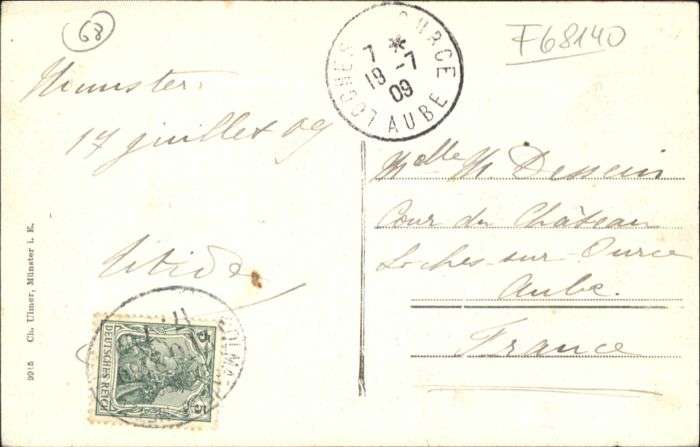 68
F68140
LOCHES S OURCE
7 *
19 -7
09
AUBE
Munster
17 juillet 09
Mlle M. Dessein
Cour du Château
Loches-sur-Ource
Aube.
France
DEUTSCHES REICH
5
5
9915 Ch. Ulmer, Münster i. E.